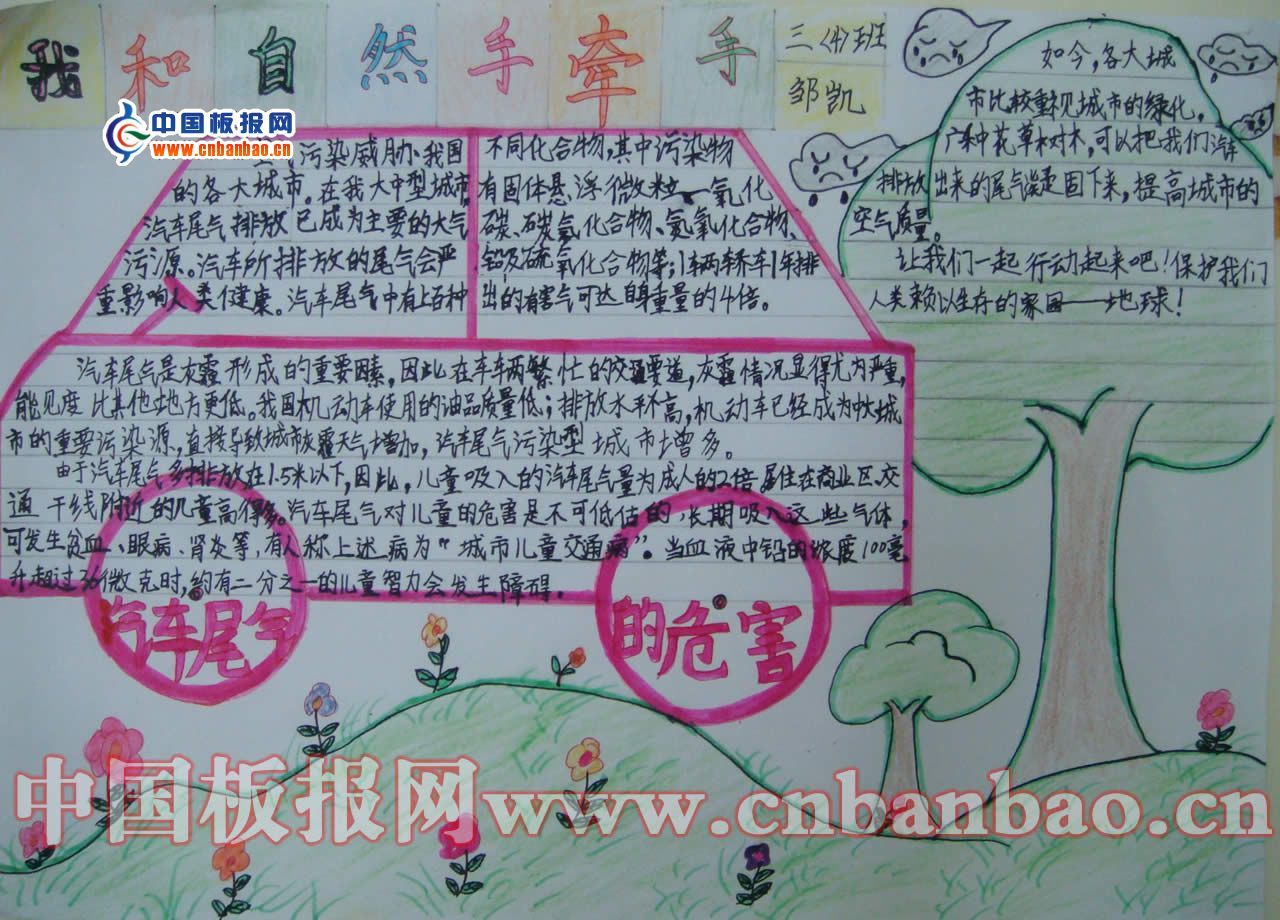 我和自然手牵手
三(4)班
邹凯
中国板报网
www.cnbanbao.cn
气污染威胁我国
的各大城市。在我大中型城市,
汽车尾气排放已成为主要的大气
污源。汽车所排放的尾气会严
重影响人类健康。汽车尾气中有上百种
不同化合物,其中污染物
有固体悬浮微粒、一氧化
碳、碳氢化合物、氮氧化合物、
铅及硫氧化合物等;1辆轿车1年排
出的有害气可达自身重量的4倍。
汽车尾气是灰霾形成的重要因素,因此在车车辆繁忙的交通要道,灰霾情况显得尤为严重,
能见度比其他地方更低。我国机动车使用的油品质量低;排放水平不高,机动车已经成为城
市的重要污染源,直接导致城市灰霾天气增加,汽车尾气污染型城市增多。
由于汽车尾气多排放在1.5米以下,因此,儿童吸入的汽车尾气量为成人的2倍居住在商业区、交
通干线附近的儿童高得多。汽车尾气对儿童的危害是不可低估的,长期吸入这些气体,
可发生贫血、眼病、肾炎等,有人称上述病为“城市儿童交通病”。当血液中铅的浓度100毫
升超过36微克时,约有二分之一的儿童智力会发生障碍。
汽车尾气
的危害
如今,各大城
市比较重视城市的绿化,
广种花草树木,可以把我们汽车
排放出来的尾气凝固下来,提高城市的
空气质量。
让我们一起行动起来吧!保护我们
人类赖以生存的家园——地球!
中国板报网www.cnbanbao.cn